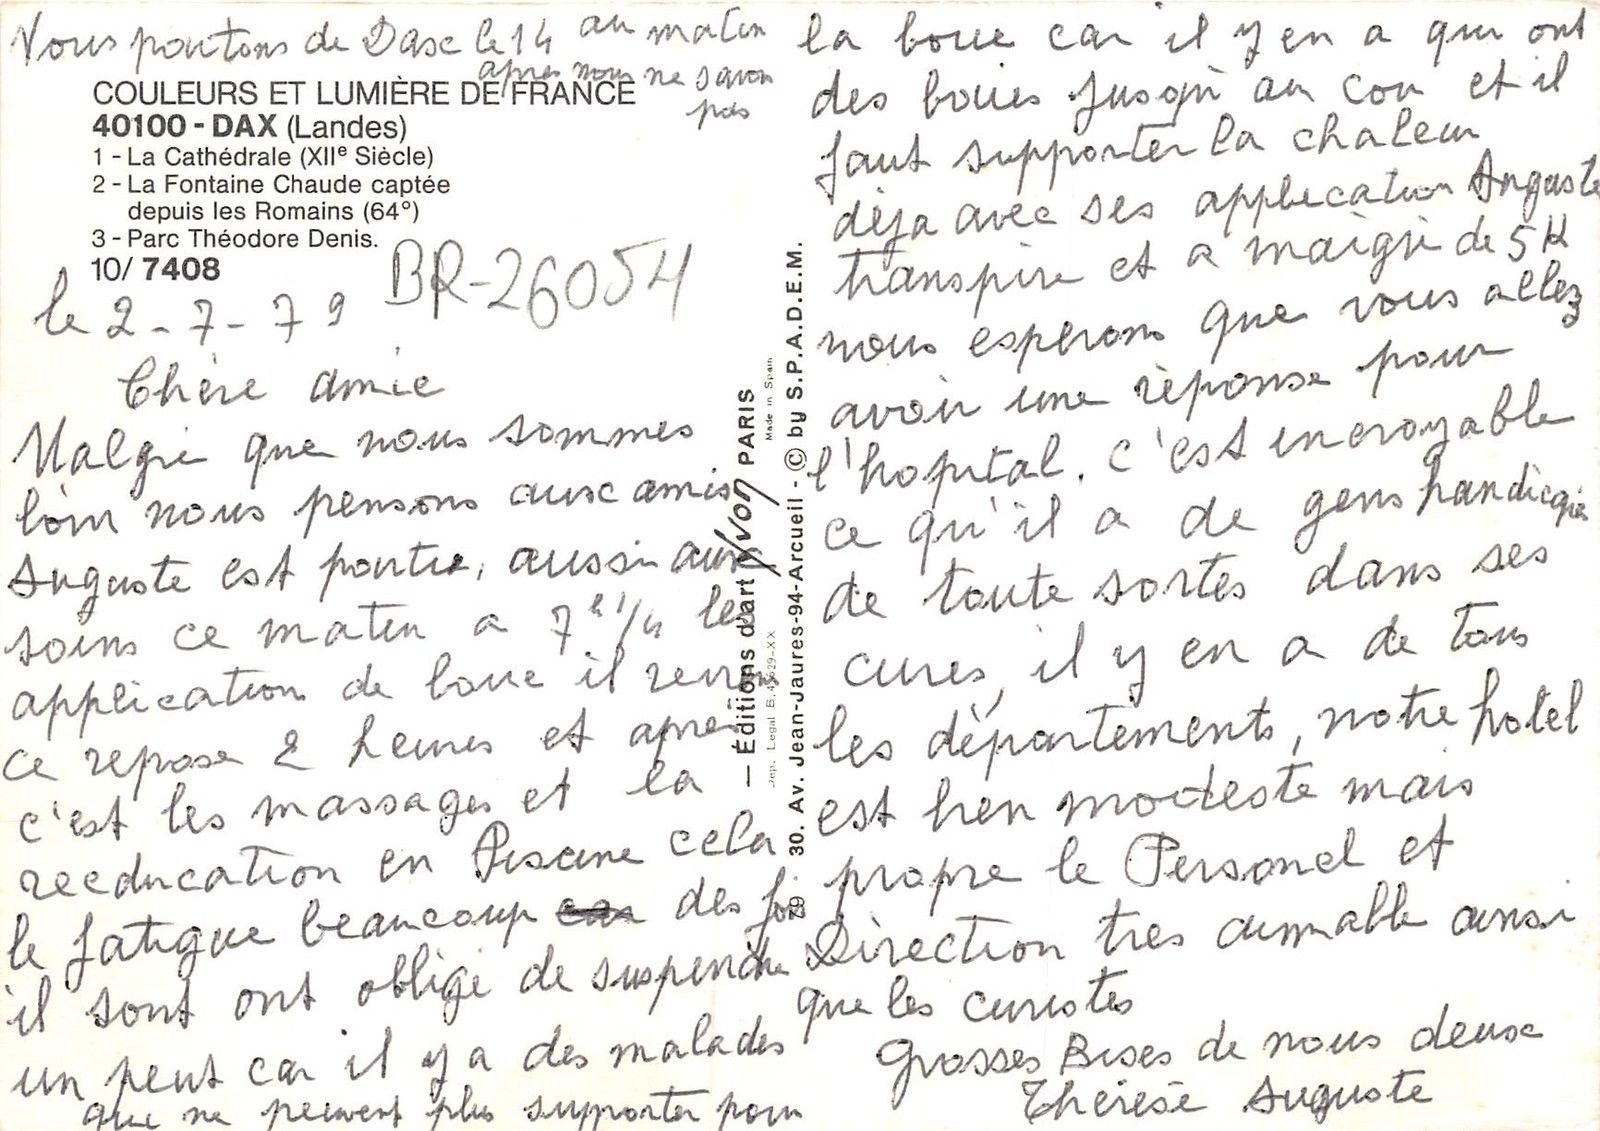 Nous partons de Dax le 14 au matin
après nous ne savon
pas
COULEURS ET LUMIÈRE DE FRANCE
40100 - DAX (Landes)
1 - La Cathédrale (XIIe Siècle)
2 - La Fontaine Chaude captée
depuis les Romains (64°)
3 - Parc Théodore Denis.
10/ 7408
BR-26054
le 2-7-79
Chère Amie
Malgré que nous sommes
loin nous pensons aux amis
Auguste est partie, aussi aux
soins ce matin a 7h 1/4 les
application de boue il revien
ce repose 2 heures et après
c'est les massages et la
reeducation en Piscine cela
le fatigue beaucoup des foi
il sont ont obligé de suspendre
un peut car il y a des malades
que ne peuvent plus supporter pour
— Éditions d'art Yvon PARIS
Made in Spain
30. Av. Jean-Jaures-94-Arcueil - © by S.P.A.D.E.M.
79
la boue car il y en a qui ont
des boues jusqu' au cou et il
faut supporter la chaleur
déja avec ses application Auguste
transpire et a maigri de 5 K
nous esperons que vous allez
avoir une réponse pour
l'hopital. c'est incroyable
ce qu'il a de gens handicapés
de toute sortes dans ses
cures, il y en a de tous
les départements, notre hotel
est bien modeste mais
propre le Personel et
Direction tres aimable ainsi
que les curistes
Grosses Bises de nous deux
Thérèse Auguste